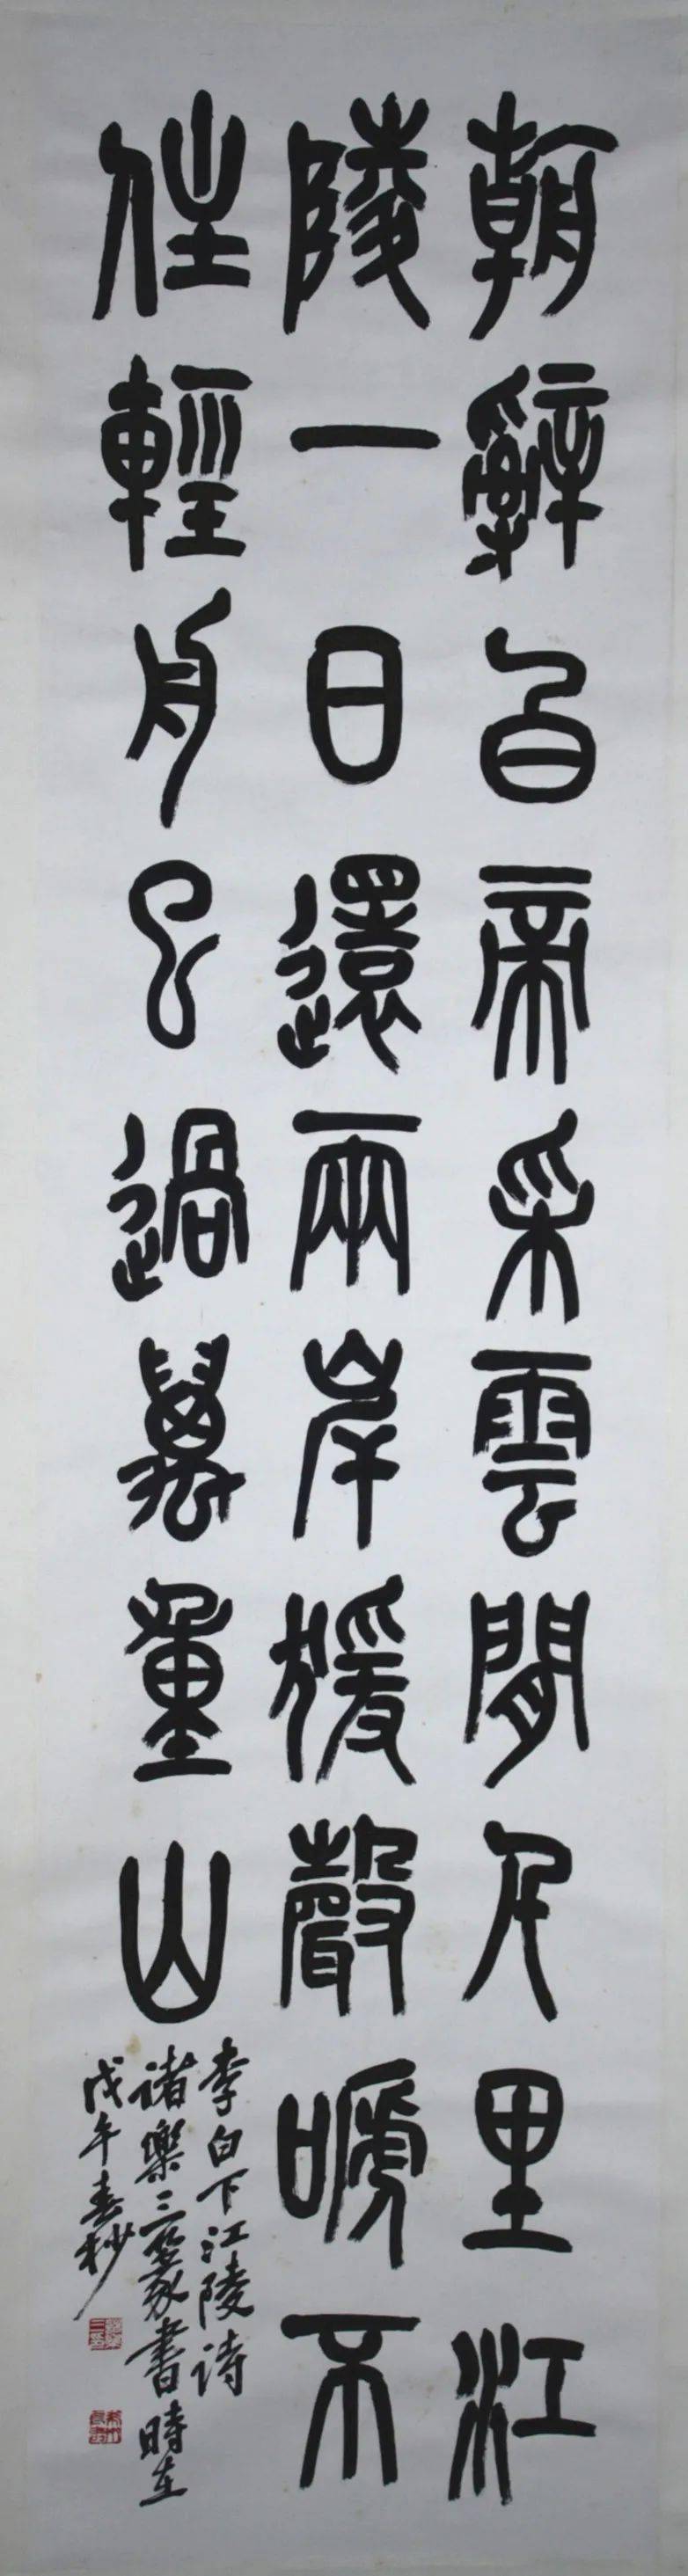 朝辭白帝采雲間千里江
陵一日還兩岸猨聲嗁不
住輕舟已過萬重山
李白下江陵詩
諸樂三篆書時在
戊午春杪